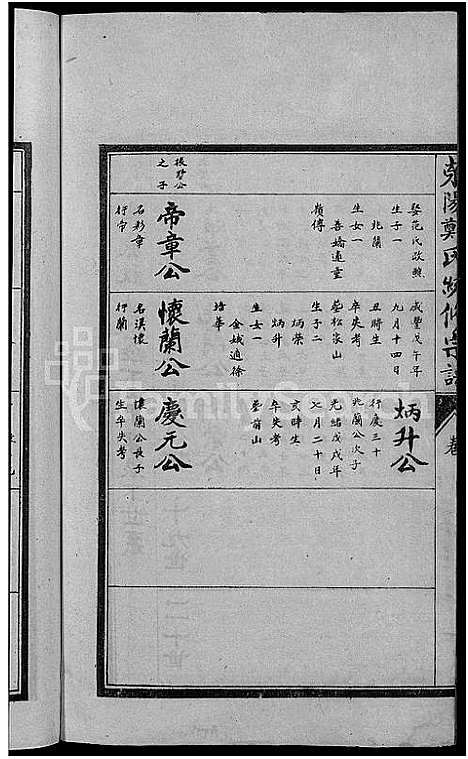 滎陽鄭氏续修宗譜
卷
娶范氏改縣
生子一
北蘭
生女一
善嬌適董
嶺傅
振聲公
之子
帝章公
名彩章
行宙
咸豐戊午年
九月十四日
丑時生
卒失考
塟松家山
生子二
炳榮
炳升
生女一
金娥適徐
培華
懷蘭公
名漢懷
行蘭
炳升公
行慶三十
北蘭公次子
光緒戊戌年
七月二十日
亥時生
卒失考
塟前山
慶元公
懷蘭公長子
生卒失考
FamilySearch